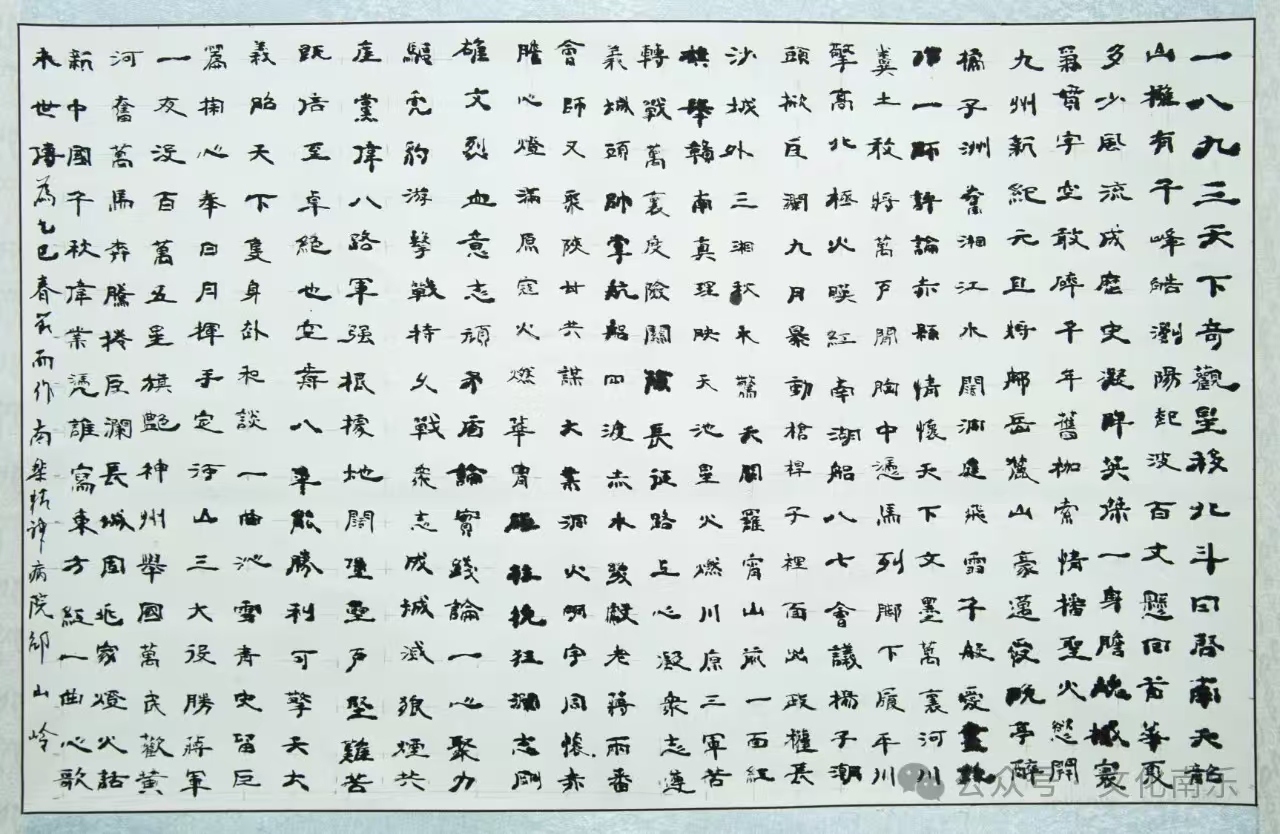 一八九三天下奇觀星移北斗日居南天韶
山擁有千峰皓瀏陽起波百丈懸回首華夏
多少風流成歷史凝眸英傑一身膽
實字空敢碎千年舊枷索情播聖火慾開
九州新紀元且將鄉岳麓山豪邁愛晚亭醉
橘子洲奮湘江水闊洞庭飛雪子般愛
一師評論赤縣情懷天下文墨萬裏河川
糞土敢將萬戶開胸中憑馬列腳下履平川
擎高北極火暎紅南湖船八七會議楊子潮
頭掀反瀾九月暴動槍桿子裡面出政權長
沙城外三湘秋水驚天關羅宵山前一面紅
旗舉贛南真理映天池星火燃川原三軍苦
轉戰萬裏度險關 長征路上心凝衆志遵
義城頭帥掌航船四渡赤水發獻老蔣兩番
會師又聚陝甘共謀大業洞火明宇同懷赤
膽心燈滿原寇火燃華胄 挽狂瀾志剛
雄文烈血意志頑矛盾論實踐論一心聚力
驅虎豹游擊戰持久戰衆志成城滅狼煙共
產黨偉八路軍强根據地開堡壘戶堅難苦
既倍至卓絕也空 八年 勝利可擎天大
義貽天下隻身赴和談一曲沁雪青史留巨
篇掬心奉日月揮手定江山三大役勝蔣軍
一友没百萬五星旗艷神州舉國萬民歡黃
河奮萬馬奔騰捲反瀾長城固兆家燈火話
新中國千秋偉業憑誰寫東方紅一曲心歌
永世傳 為乙巳春節而作 南樂精神病院邰山岭
公众号 文化南乐